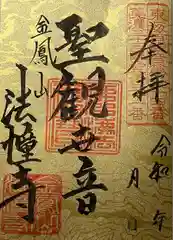 奉拝
令和 年
月 日
聖観世音
金鳳山
法幢寺